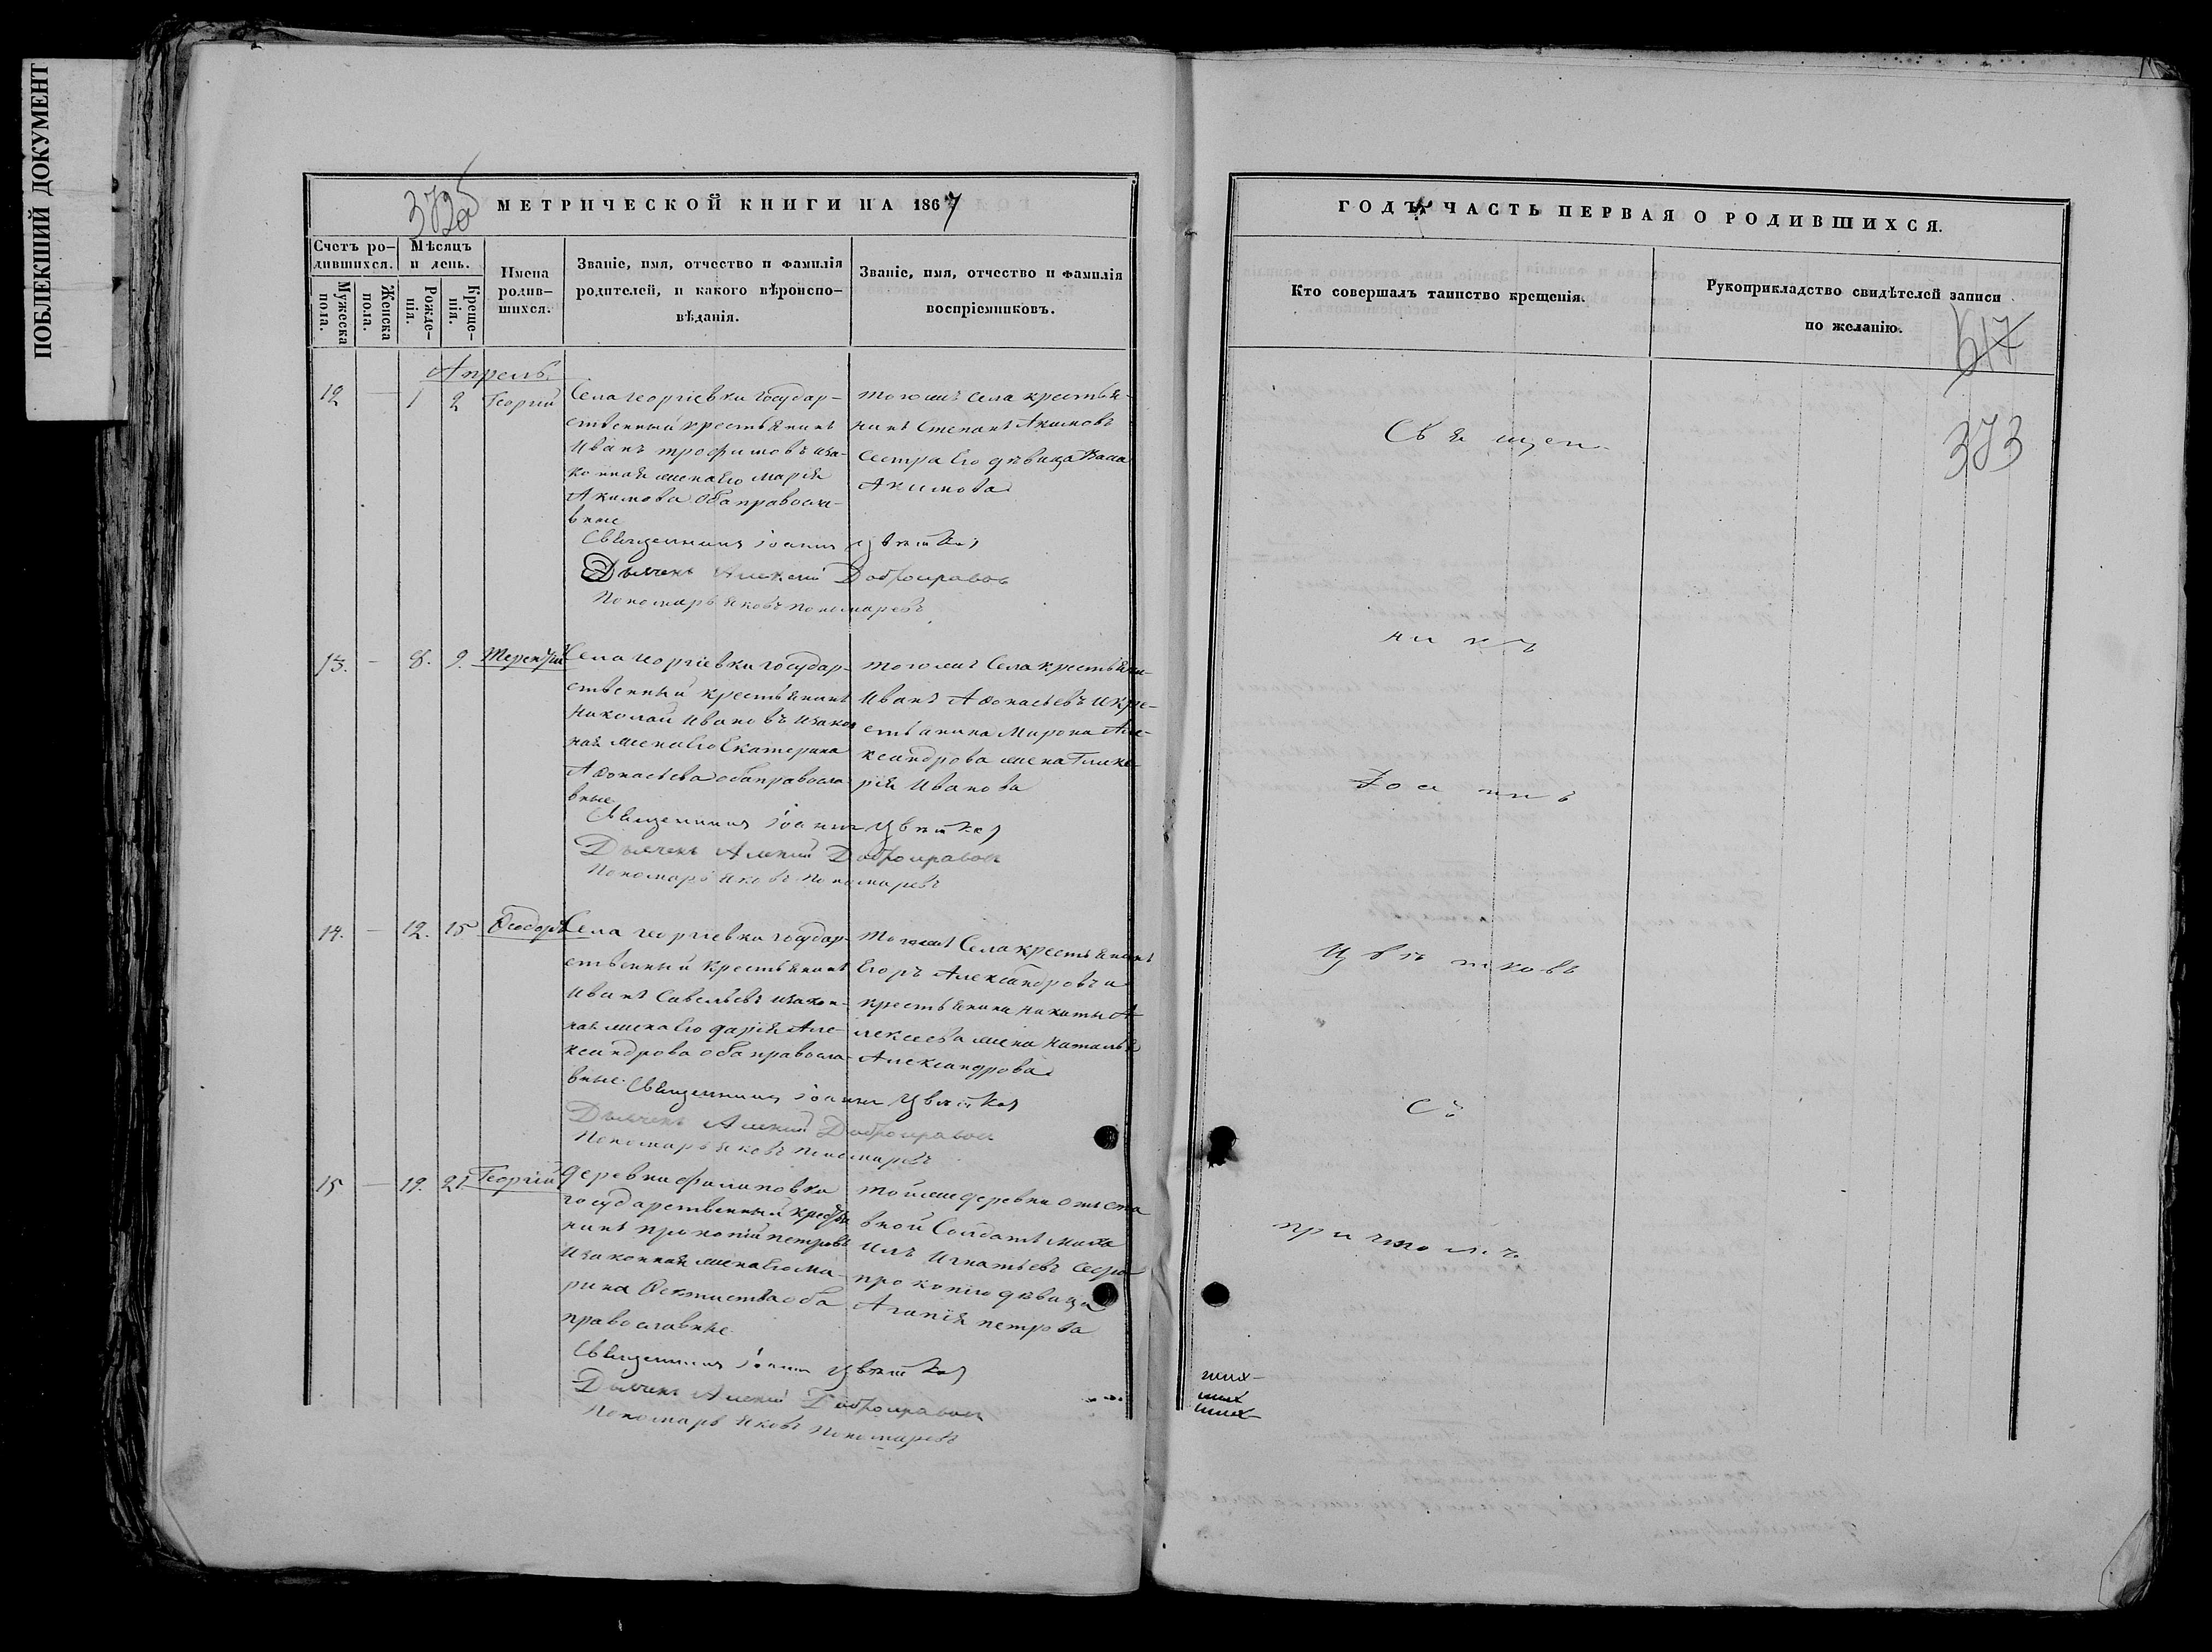 ПОБЛЕКШИЙ ДОКУМЕНТ
372об
МЕТРИЧЕСКОЙ КНИГИ НА 1867
Счетъ родившихся.
Мѣсяцъ и день.
Мужеска пола.
Женска пола.
Рожденія.
Крещенія.
Имена родившихся.
Званіе, имя, отчество и фамилія
родителей, и какого вѣроиспо-
вѣданія.
Званіе, имя, отчество и фамилія
воспріемниковъ.
Апрель
12 — 1 2 Георгий
Села Георгіевки государ-
ственный крестьянинъ
Иванъ Трофимовъ иза-
конная жена его Марія
Акимова оба правосла-
вные
тогожъ села крестья-
нинъ Степанъ Акимовъ
сестра его девица
Акимова
Священникъ Іоаннъ Цвѣтков
Дьячекъ Алексей Добронравовъ
Пономарь Яковъ Пономаревъ
13. — 8. 9. Терентій
Села Георгіевки государ-
ственный крестьянинъ
Николай Ивановъ изакон
ная жена его Екатерина
Афонасьева оба правосла
вные
тогожъ Села крестьяни-
Иванъ Афонасьевъ икре-
стьянина Мирона Але-
ксандрова жена Глике
рія Иванова
Священникъ Іоаннъ Цвѣтков
Дьячекъ Алексей Добронравовъ
Пономарь Яковъ Пономаревъ
14. — 12. 15 Ѳеодоръ
Села Георгіевки государ-
ственный крестьянинъ
Иванъ Савельевъ изакон-
ная жена его Дарія Але-
ксандрова оба правосла-
вные.
тогожъ Села крестьянинъ
Егоръ Александровъ и
крестьянина Никиты А-
лексеева жена Наталья
Александрова
Священникъ Іоаннъ Цвѣтков
Дьячекъ Алексей Добронравовъ
Пономарь Яковъ Пономаревъ
15 — 19. 21 Георгій
деревни Филиповки
государственный крестья
нинъ Прокопій Петровъ
изаконная жена его Ма-
рина Ѳектистова оба
православные.
тойже деревни отста
вной Солдатъ Миха
илъ Игнатьевъ Сестра
Прокопію девица
Агапія Петрова
Священникъ Іоаннъ Цвѣтков
Дьячекъ Алексей Добронравовъ
Пономарь Яковъ Пономаревъ
ГОДЪ ЧАСТЬ ПЕРВАЯ О РОДИВШИХСЯ.
Кто совершалъ таинство крещенія.
Рукоприкладство свидѣтелей записи
по желанію.
517
373
Священ-
никъ
Іоаннъ
Цвѣтковъ
Съ
причтомъ.